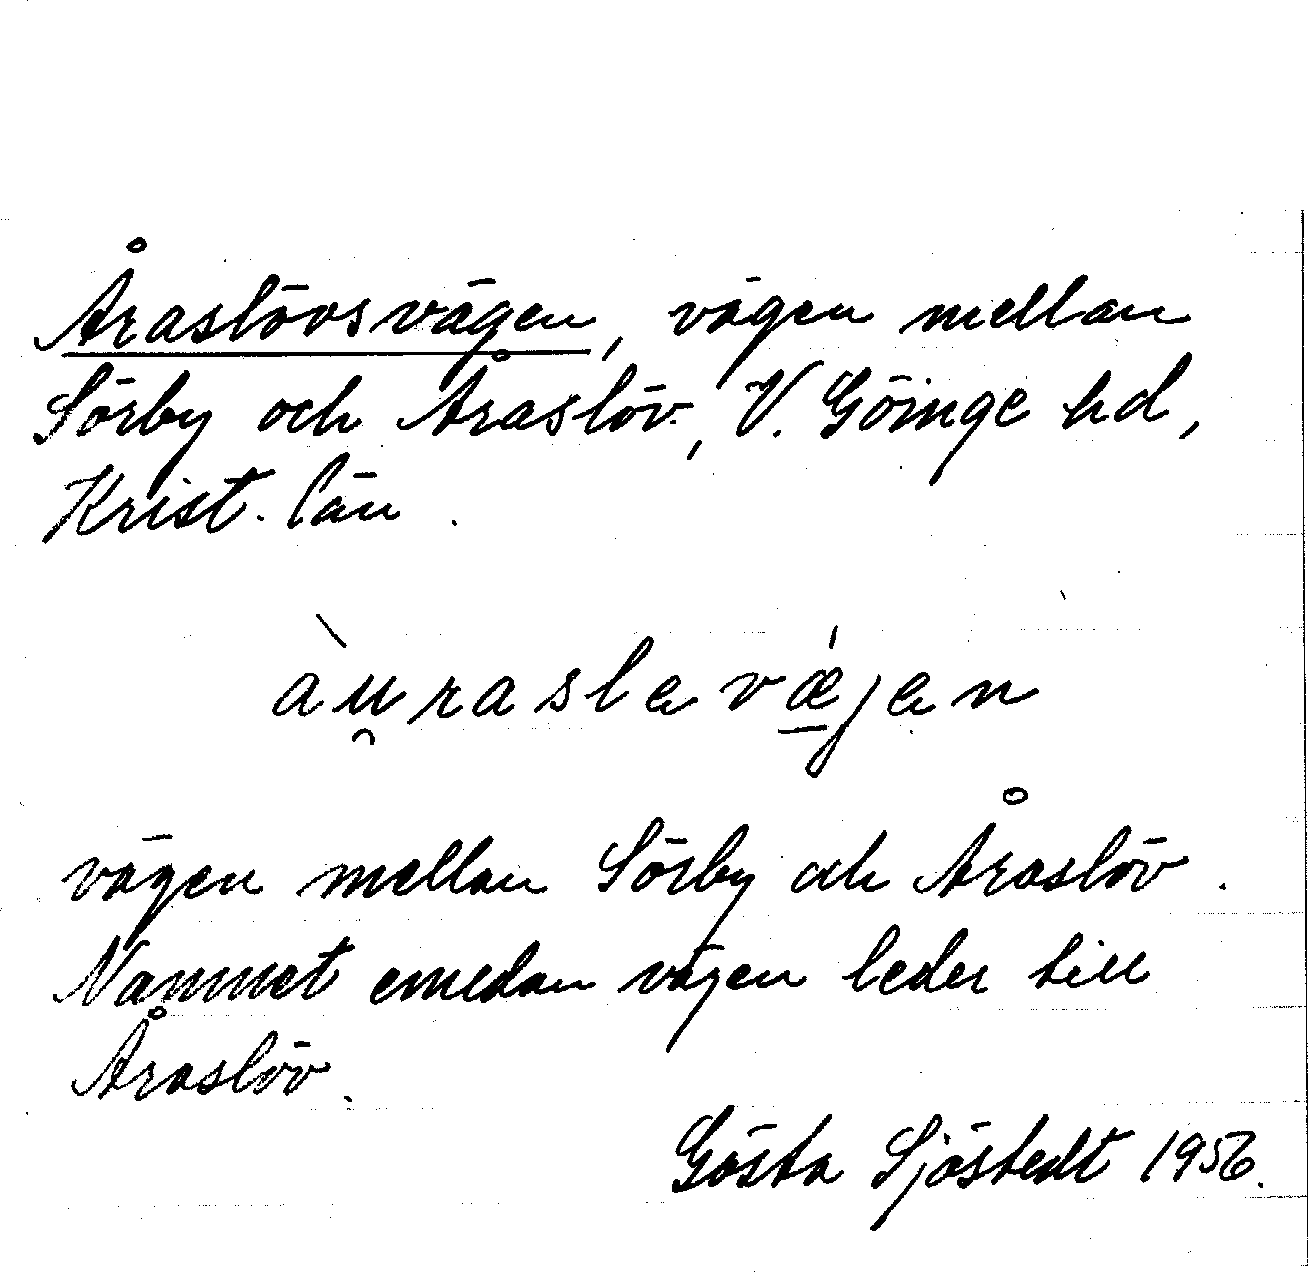 Åraslövsvägen, vägen mellan
Sörby och Åraslöv, V. Göinge hd,
Krist. län.
àu̯raslavǽ̱jan
vägen mellan Sörby och Åraslöv.
Namnet emedan vägen leder till
Åraslöv.
Gösta Sjöstedt 1956.